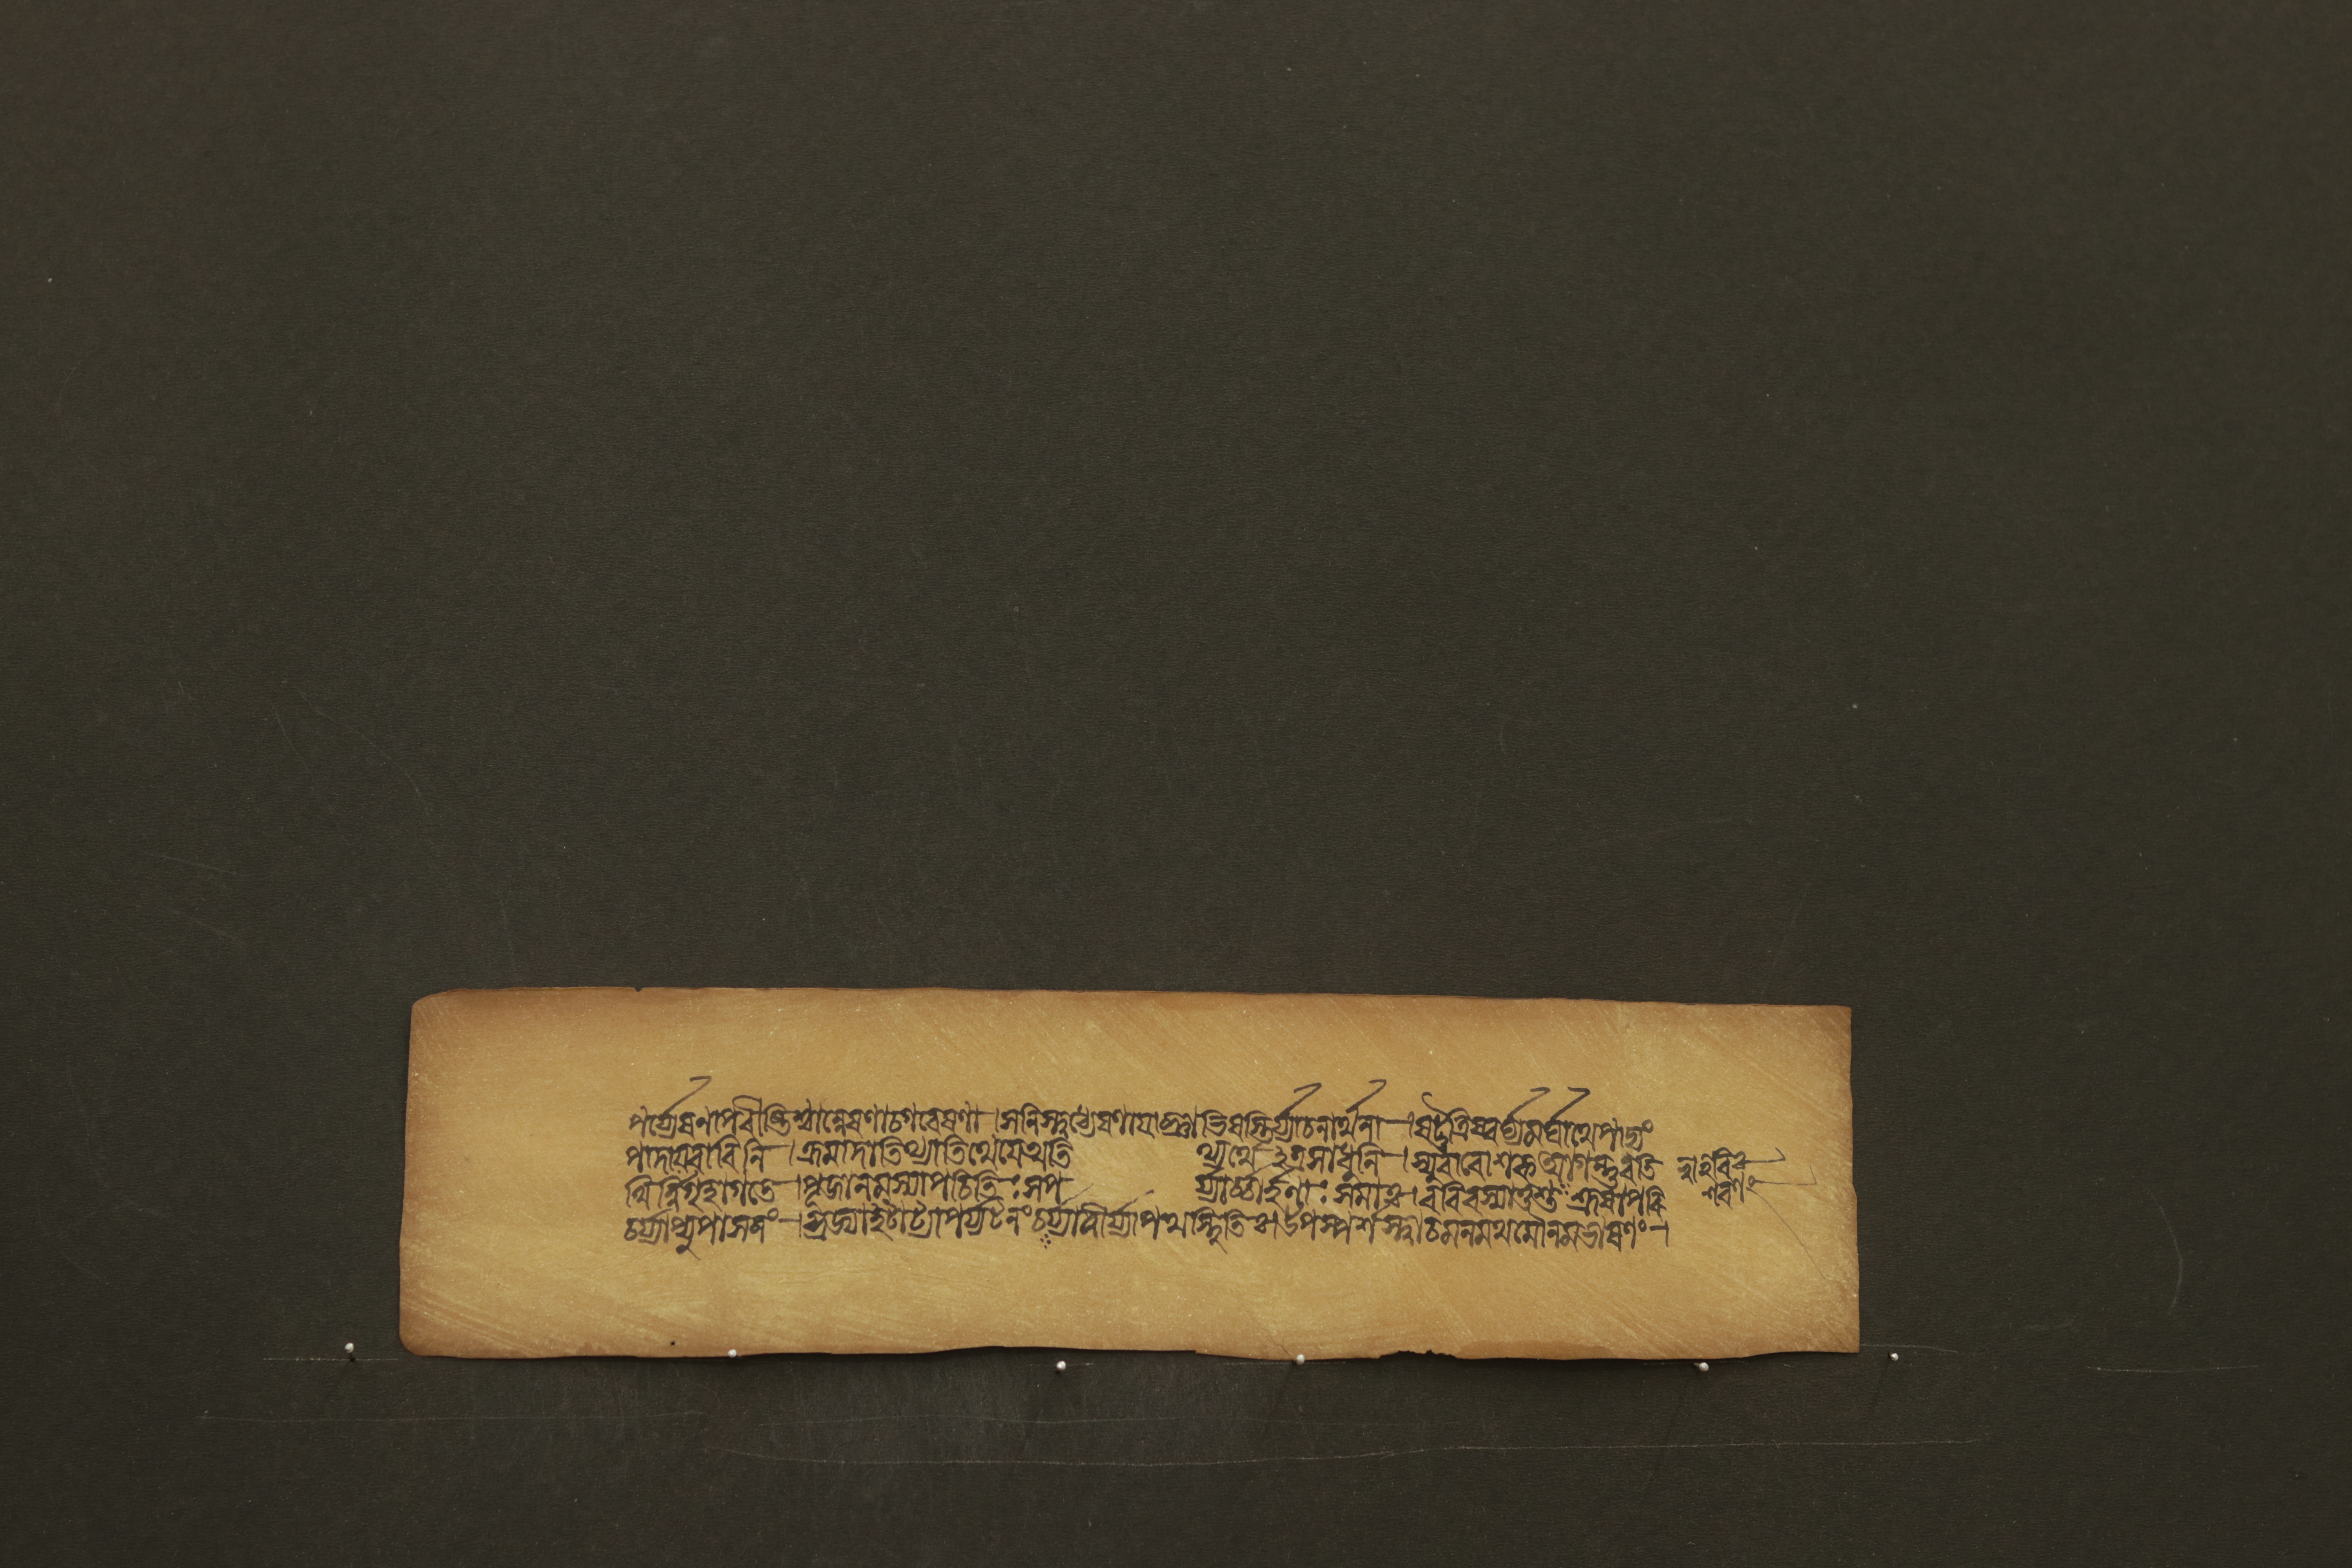 পর্য্যেষণাপরীষ্টিশ্চান্বেষণাচগবেষণা।সনিস্ত্বধ্যেষণাযাচ্ঞাভিষস্তির্য্যাচনার্থনা।ষট্তুত্রিষ্বর্ঘ্যমর্ঘার্থেপাদ্যং
পাদায়বারিনি।ক্রমাদাতিথ্যাতিথেযেঅতি থ্যর্থেঽত্রসাধুনি।স্যুরাবেশিকআগন্তুরতি
থির্ন্নাগৃহাগতে।পূজানমস্যাপচিতিঃসপ র্য্যার্চ্চার্হণাঃসমাঃ।বরিবস্যাতুশুশ্রূষাপরি
চর্য্যাপ্যুপাসনং।ব্রজ্যাহটাট্যাপর্য্যটনংচর্য্যাত্বীর্য্যাপথস্থিতিঃ।উপস্পর্শস্ত্বাচমনমথমৌনমভাষণং।